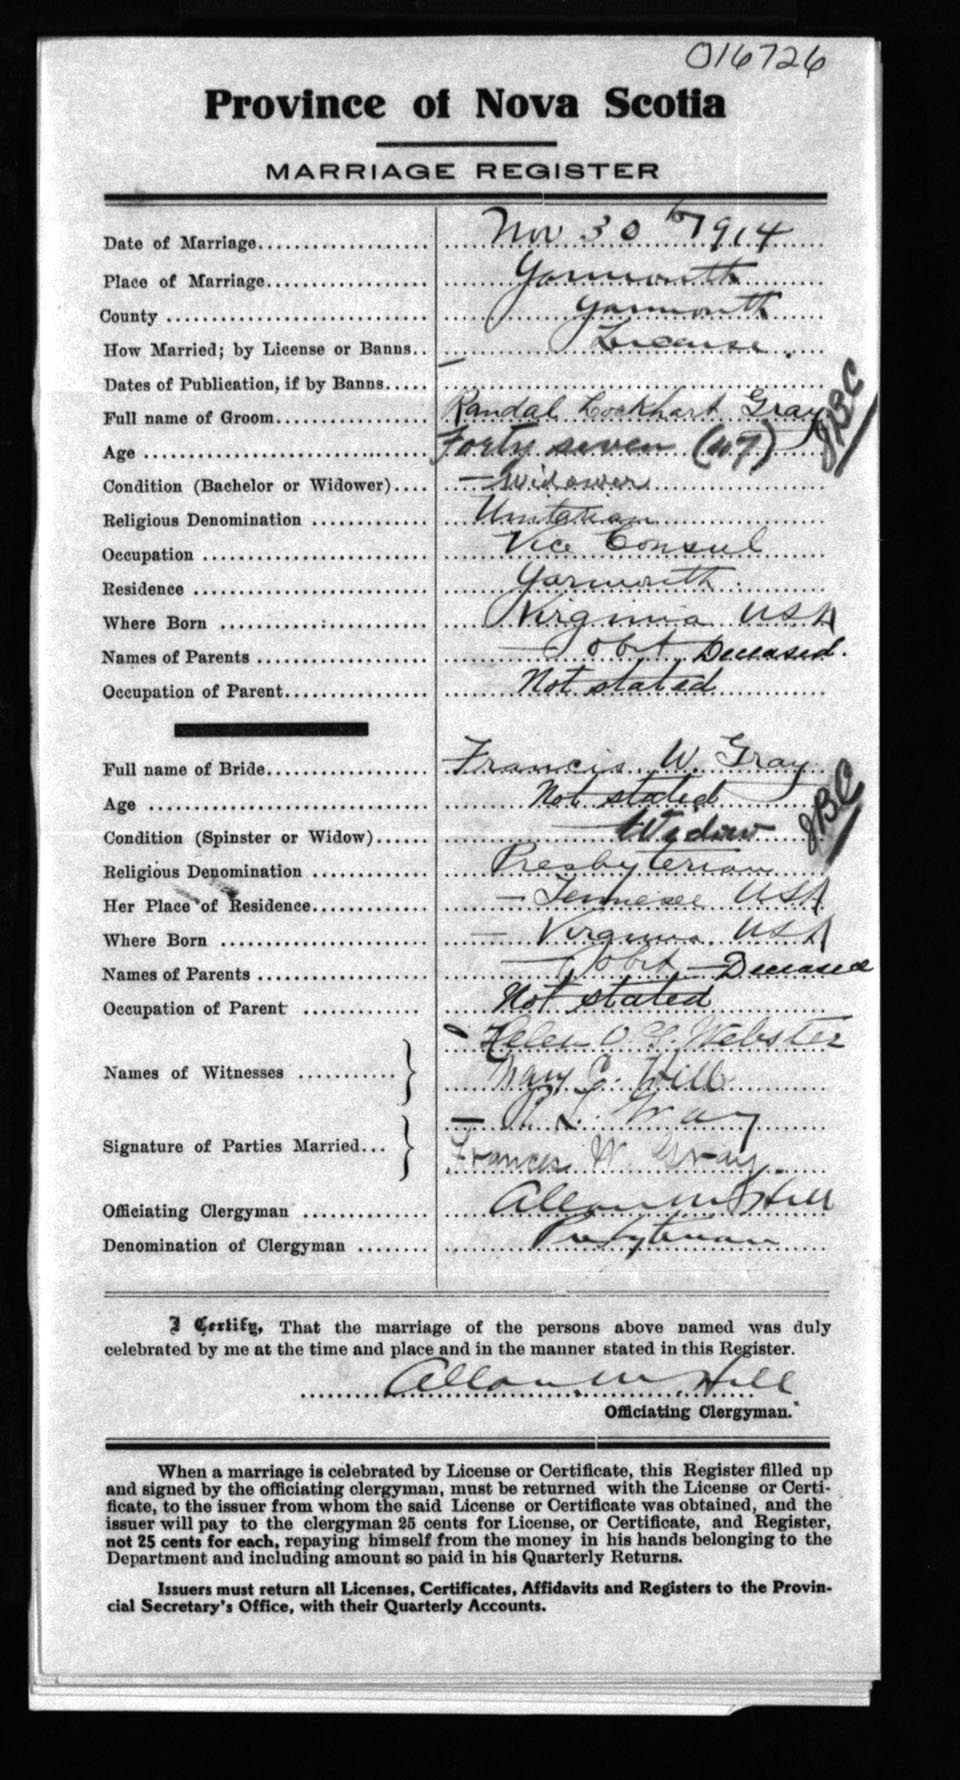 016726
Province of Nova Scotia
MARRIAGE REGISTER
Date of Marriage.................... Nov 30th 1914
Place of Marriage................... Yarmouth
County .............................. Yarmouth
How Married; by License or Banns.. License.
Dates of Publication, if by Banns.....
Full name of Groom.................. Randal Lockhart Gray JBC
Age .................................. Forty seven (47)
Condition (Bachelor or Widower).... Widower
Religious Denomination ............. Unitarian
Occupation .......................... Vice Consul
Residence ........................... Yarmouth.
Where Born .......................... Virginia USA
Names of Parents ................... Deceased.
Occupation of Parent................ Not stated
Full name of Bride.................. Francis W. Gray
Age .................................. Not stated JBC
Condition (Spinster or Widow)...... Widow
Religious Denomination ............. Presbyterian
Her Place of Residence.............. Tennesee USA
Where Born .......................... Virginia USA
Names of Parents ................... Deceased
Occupation of Parent ............. Not stated
Names of Witnesses ........... } Helen Webster
Mary
Signature of Parties Married... } R. L. Gray
Frances W. Gray
Officiating Clergyman .............. Allan M Hill
Denomination of Clergyman ........ Presbyterian
I Certify, That the marriage of the persons above named was duly
celebrated by me at the time and place and in the manner stated in this Register.
Allan M Hill
Officiating Clergyman.
When a marriage is celebrated by License or Certificate, this Register filled up
and signed by the officiating clergyman, must be returned with the License or Certi-
ficate, to the issuer from whom the said License or Certificate was obtained, and the
issuer will pay to the clergyman 25 cents for License, or Certificate, and Register,
not 25 cents for each, repaying himself from the money in his hands belonging to the
Department and including amount so paid in his Quarterly Returns.
Issuers must return all Licenses, Certificates, Affidavits and Registers to the Provin-
cial Secretary's Office, with their Quarterly Accounts.